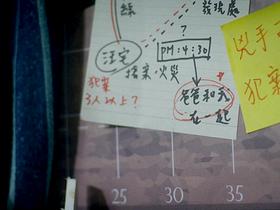 絲
發現處
?
汪宅
PM:4:30
火災
犯案
3人以上?
爸爸和我
在一起
兇手
犯案
25
30
35